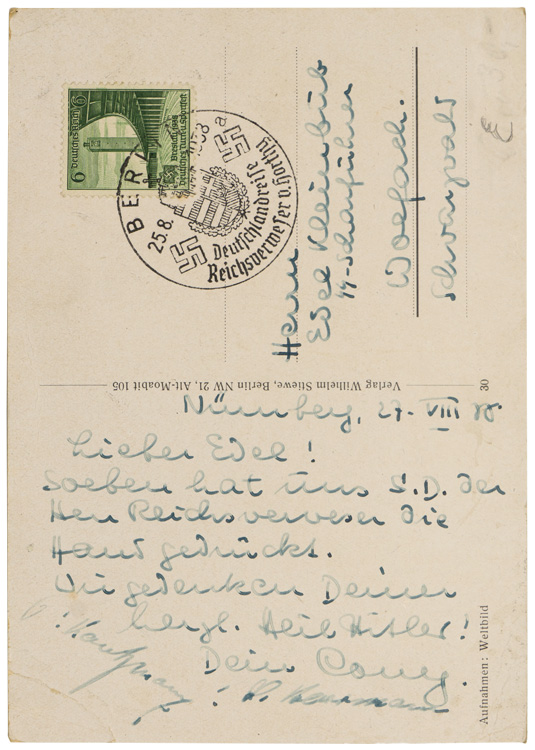 Nürnberg, 27. VIII 38.
Lieber Edel!
Soeben hat uns S.D. der
Herr Reichsverweser die
Hand gedrückt.
Wir gedenken Deiner
herzl. Heil Hitler!
Dein Conny.
Herrn
Edel Kleinbub
SS-Scharführer
Wolfach.
Schwarzwald
6 Deutsches Reich 6
Breslau 1938
BERLIN
25.8. 1938
a
Deutschlandreise
Reichsverweser v. Horthy
Verlag Wilhelm Stiewe, Berlin NW 21, Alt-Moabit 105
30
Aufnahmen: Weltbild